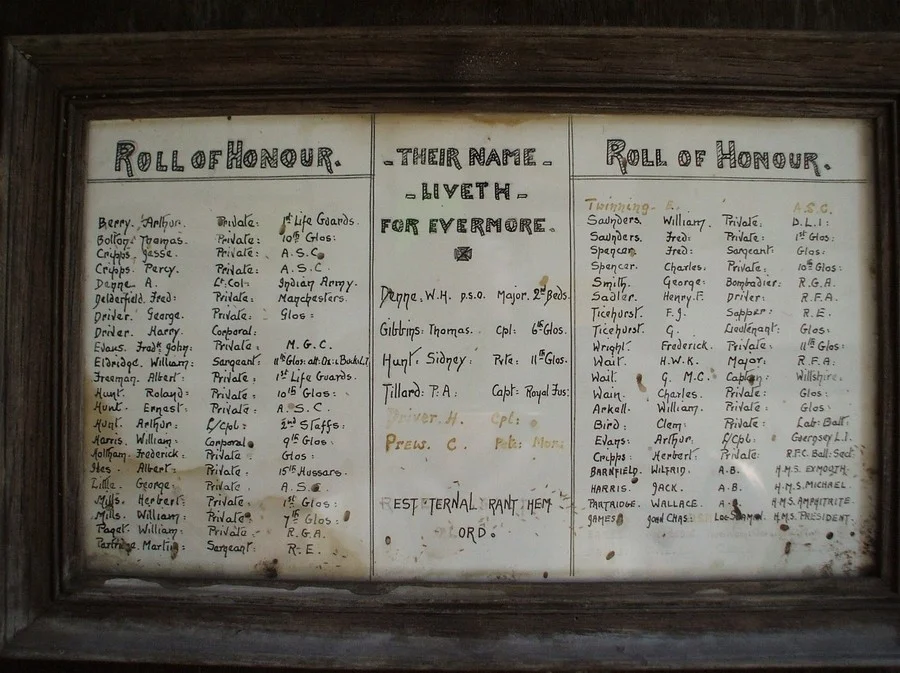 ROLL OF HONOUR.
Berry. Arthur. Private: 1st Life Guards.
Bolton: Thomas. Private: 10th Glos:
Cripps Jesse. Private: A.S.C.
Cripps. Percy. Private: A.S.C.
Denne A. Lt.Col: Indian Army.
Delderfield Fred: Private: Manchesters.
Driver. George. Private: Glos:
Driver. Harry. Corporal:
Evans. Fredk John: Private: M.G.C.
Eldridge. William: Sergeant: 11th Glos: att: Ox: & Bucks L.I.
Freeman. Albert: Private: 1st Life Guards.
Hunt. Roland: Private: 10th Glos:
Hunt. Ernest: Private: A.S.C.
Hunt. Arthur: L/Cpl: 2nd Staffs:
Harris. William: Corporal 9th Glos:
Holtham. Frederick: Private: Glos:
Iles. Albert: Private: 15th Hussars.
Little. George: Private: A.S.C.
Mills. Herbert: Private: 1st Glos:
Mills. William: Private: 7th Glos:
Paget. William: Private. R.G.A.
Partridge. Martin: Sergeant: R.E.
- THEIR NAME -
- LIVETH -
FOR EVERMORE.
Denne, W.H. D.S.O. Major. 2nd Beds.
Gibbins: Thomas. Cpl: 6th Glos.
Hunt: Sidney: Pvte: 11th Glos:
Tillard: P.A. Capt: Royal Fus:
Driver. H. Cpl:
Prews. C. Pvte: Mons
EST TERNAL RANT HEM
ORD.
ROLL OF HONOUR.
Twinning- E. A.S.C.
Saunders. William. Private: D.L.I:
Saunders. Fred: Private: 1st Glos:
Spencer. Fred: Sergeant: Glos:
Spencer. Charles: Private: 10th Glos:
Smith. George: Bombadier: R.G.A.
Sadler. Henry.F. Driver: R.F.A.
Ticehurst. F.J. Sapper: R.E.
Ticehurst. G. Lieutenant: Glos:
Wright. Frederick. Private: 11th Glos:
Wait. H.W.K. Major: R.F.A:
Wait. G. M.C. Captain: Wiltshire.
Wain. Charles. Private: Glos:
Arkell. William. Private: Glos:
Bird: Clem: Private: Lab: Batt:
Evans: Arthur. L/Cpl: Guernsey L.I.
Cripps: Herbert: Private: R.F.C. Ball: Sect:
BARNFIELD. WILFRID. A.B. H.M.S. EXMOUTH.
HARRIS. JACK. A.B. H.M.S. MICHAEL.
PARTRIDGE. WALLACE. A.B. H.M.S. AMPHITRITE.
JAMES. JOHN CHAS: H.M.S. PRESIDENT.